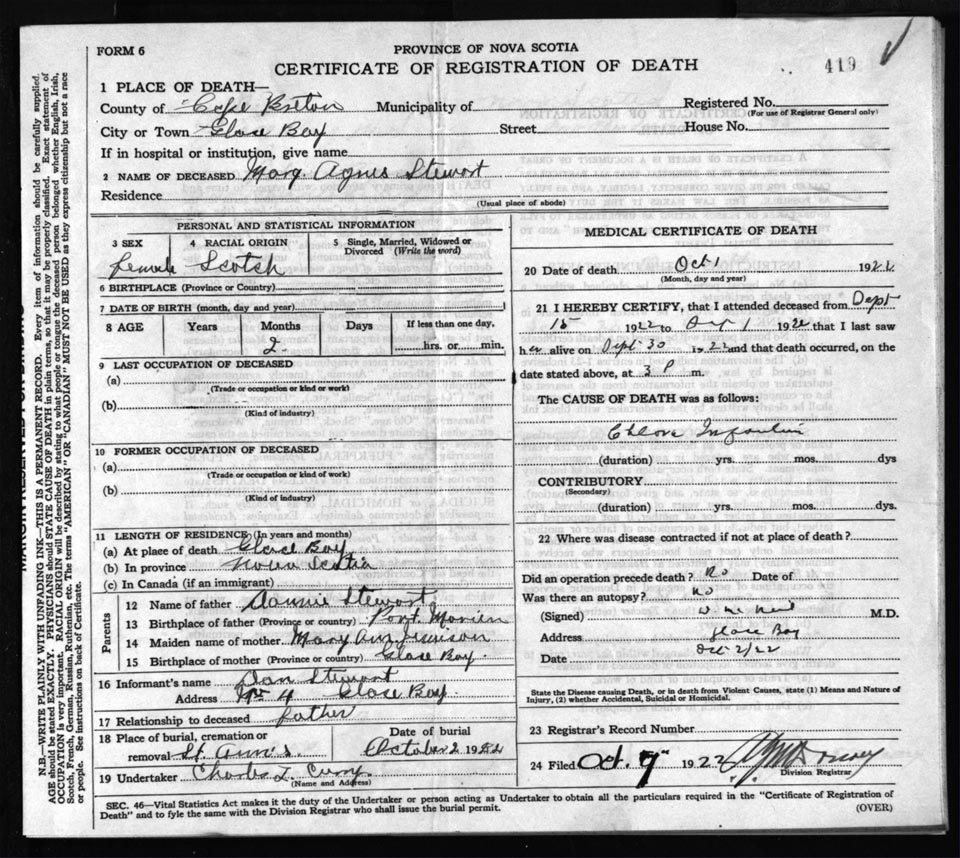 FORM 6
PROVINCE OF NOVA SCOTIA
CERTIFICATE OF REGISTRATION OF DEATH
419
1 PLACE OF DEATH—
County of Cape Breton Municipality of Registered No.
(For use of Registrar General only)
City or Town Glace Bay Street House No.
If in hospital or institution, give name
2 NAME OF DECEASED Mary Agnes Stewart
Residence
(Usual place of abode)
PERSONAL AND STATISTICAL INFORMATION
3 SEX 4 RACIAL ORIGIN 5 Single, Married, Widowed or Divorced (Write the word)
female Scotch
6 BIRTHPLACE (Province or Country)
7 DATE OF BIRTH (month, day and year)
8 AGE Years Months Days If less than one day,
2 hrs. or min.
9 LAST OCCUPATION OF DECEASED
(a)
(Trade or occupation or kind or work)
(b)
(Kind of industry)
10 FORMER OCCUPATION OF DECEASED
(a)
(Trade or occupation or kind of work)
(b)
(Kind of industry)
11 LENGTH OF RESIDENCE (In years and months)
(a) At place of death Glace Bay
(b) In province Nova Scotia
(c) In Canada (if an immigrant)
Parents
12 Name of father Stewart
13 Birthplace of father (Province or country) Port Morien
14 Maiden name of mother Mary Ann
15 Birthplace of mother (Province or country) Glace Bay
16 Informant's name Dan Stewart
Address No 4 Glace Bay
17 Relationship to deceased father
18 Place of burial, cremation or removal St. Ann's
Date of burial
October 2 1922
19 Undertaker Charles L. Curry
(Name and Address)
MEDICAL CERTIFICATE OF DEATH
20 Date of death Oct 1 1922
(Month, day and year)
21 I HEREBY CERTIFY, that I attended deceased from Sept
15 1922 to Oct 1 1922 that I last saw
her alive on Sept 30 1922 and that death occurred, on the
date stated above, at 3 P m.
The CAUSE OF DEATH was as follows:
Cholera Infantum
(duration) yrs. mos. dys
CONTRIBUTORY
(Secondary)
(duration) yrs. mos. dys.
22 Where was disease contracted if not at place of death?
Did an operation precede death? No Date of
Was there an autopsy? No
(Signed) M.D.
Address Glace Bay
Date Oct 2/22
State the Disease causing Death, or in death from Violent Causes, state (1) Means and Nature of Injury, (2) whether Accidental, Suicidal or Homicidal.
23 Registrar's Record Number
24 Filed Oct. 7 1922
Division Registrar
SEC. 46—Vital Statistics Act makes it the duty of the Undertaker or person acting as Undertaker to obtain all the particulars required in the "Certificate of Registration of
Death" and to fyle the same with the Division Registrar who shall issue the burial permit. (OVER)
N.B.—WRITE PLAINLY WITH UNFADING INK—THIS IS A PERMANENT RECORD. Every item of information should be carefully supplied.
AGE should be stated EXACTLY. PHYSICIANS should STATE CAUSE OF DEATH in plain terms, so that it may be properly classified. Exact statement of
OCCUPATION is very important. RACIAL ORIGIN will be described by stating to what people or tongue the deceased person belonged whether English, Irish,
Scotch, French, German, Russian, Ruthenian, etc. The terms "AMERICAN" OR "CANADIAN" MUST NOT BE USED as they express citizenship but not a race
or people. See instructions on back of Certificate.